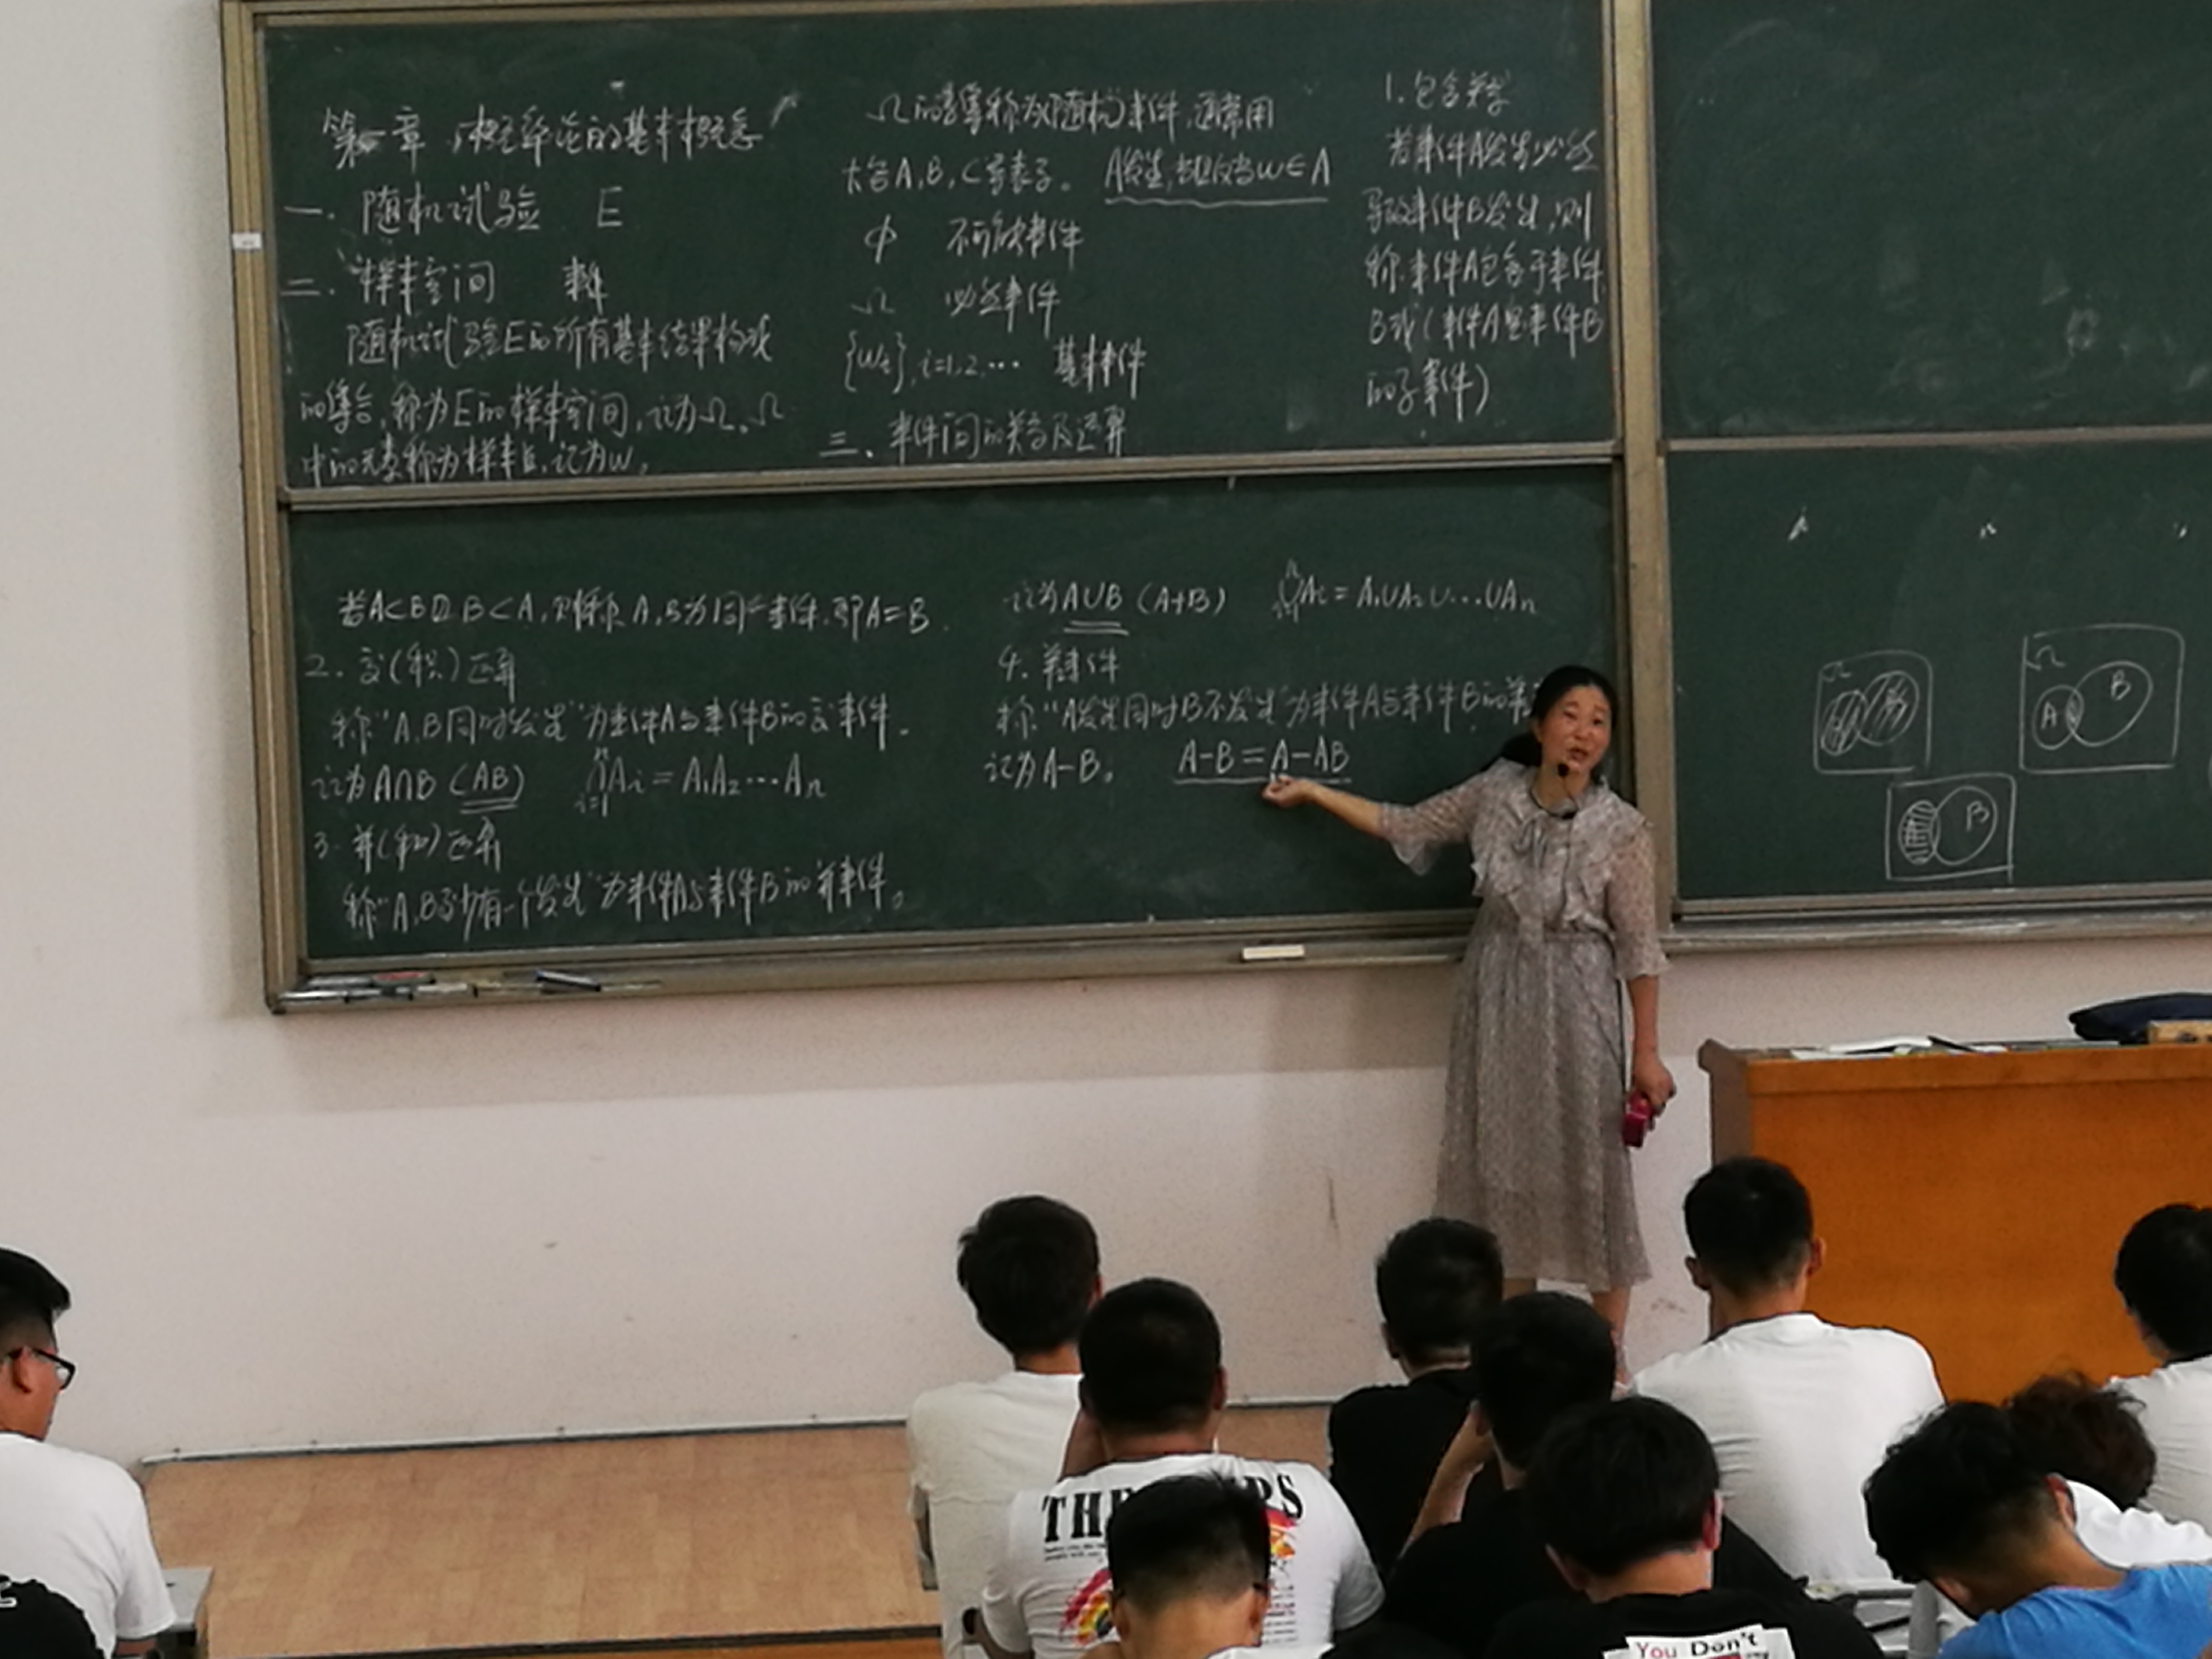 第一章 概率论的基本概念
一. 随机试验 E
二. 样本空间 事件
随机试验E的所有基本结果构成
的集合,称为E的样本空间,记为Ω。Ω
中的元素称为样本点,记为ω。
Ω的子集称为随机事件,通常用
大写A,B,C等表示。A发生,当且仅当ω∈A
Φ 不可能事件
Ω 必然事件
{ωi},i=1,2,… 基本事件
三、事件间的关系及运算
1.包含关系
若事件A发生必然
导致事件B发生,则
称事件A包含于事件
B或(事件A是事件B
的子事件)
若A⊂B且B⊂A,则称A,B为同一事件.即A=B.
2.交(积)运算
称“A,B同时发生”为事件A与事件B的交事件.
记为A∩B (AB) ⋂ⁿᵢ₌₁Ai=A₁A₂…Aₙ
3.并(和)运算
称“A,B至少有一个发生”为事件A与事件B的并事件。
记为A∪B (A+B) ⋃ⁿᵢ₌₁Ai=A₁∪A₂∪…∪Aₙ
4.差事件
称“A发生同时B不发生”为事件A与事件B的差
记为A-B。 A-B=A-AB
Ω
Ω A B
B
THE RS
You Don't